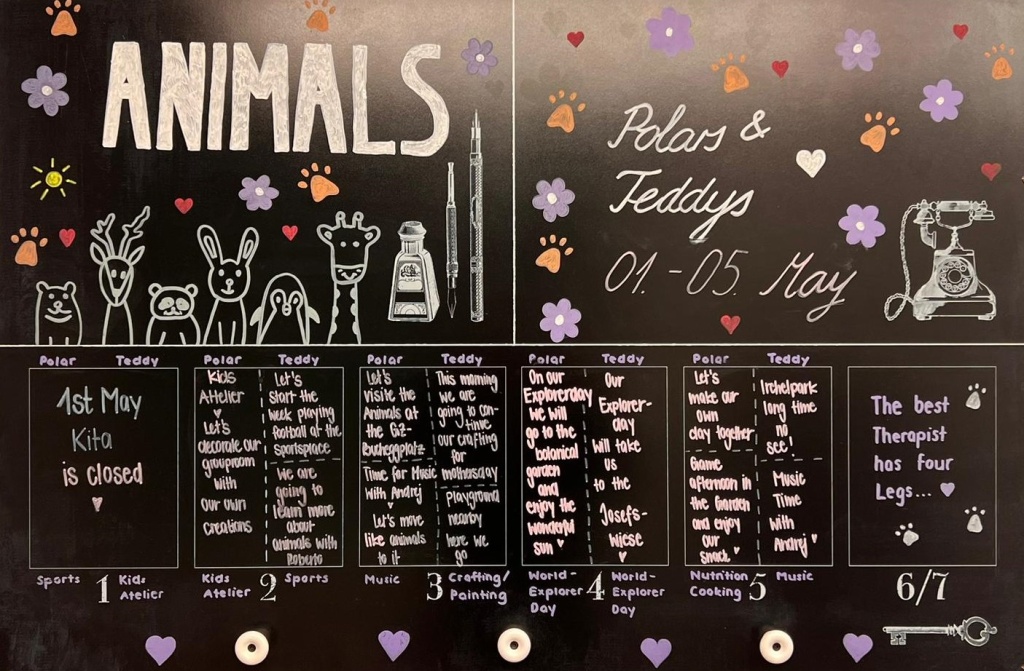 ANIMALS
Polars &
Teddys
01. - 05. May
Polar Teddy
1st May
Kita
is closed
Sports 1 Kids
Atelier
Polar
Kids
Atelier
Let's
decorate our
grouproom
with
our own
creations
Teddy
Let's
start the
week playing
football at the
sportsplace
We are
going to
learn more
about
animals with
Roberto
Kids
Atelier 2 Sports
Polar
Let's
visite the
Animals at
the GZ-
Bucheggplatz
Time for Music
with Andrej
Let's move
like animals
to it
Teddy
This morning
we are
going to con-
tinue
our crafting
for
mothersday
playground
nearby
here we
go
Music 3 Crafting/
Painting
Polar
On our
Explorerday
we will
go to the
botanical
garden
and
enjoy the
wonderful
sun
Teddy
Our
Explorer-
day
will take
us
to the
Josefs-
wiese
World-
Explorer
Day 4 World-
Explorer
Day
Polar
Let's
make our
own
clay together
Game
afternoon in
the Garden
and enjoy
our
snack
Teddy
Irchelpark
long time
no
see!
Music
Time
with
Andrej
Nutrition
Cooking 5 Music
The best
Therapist
has four
Legs...
6/7